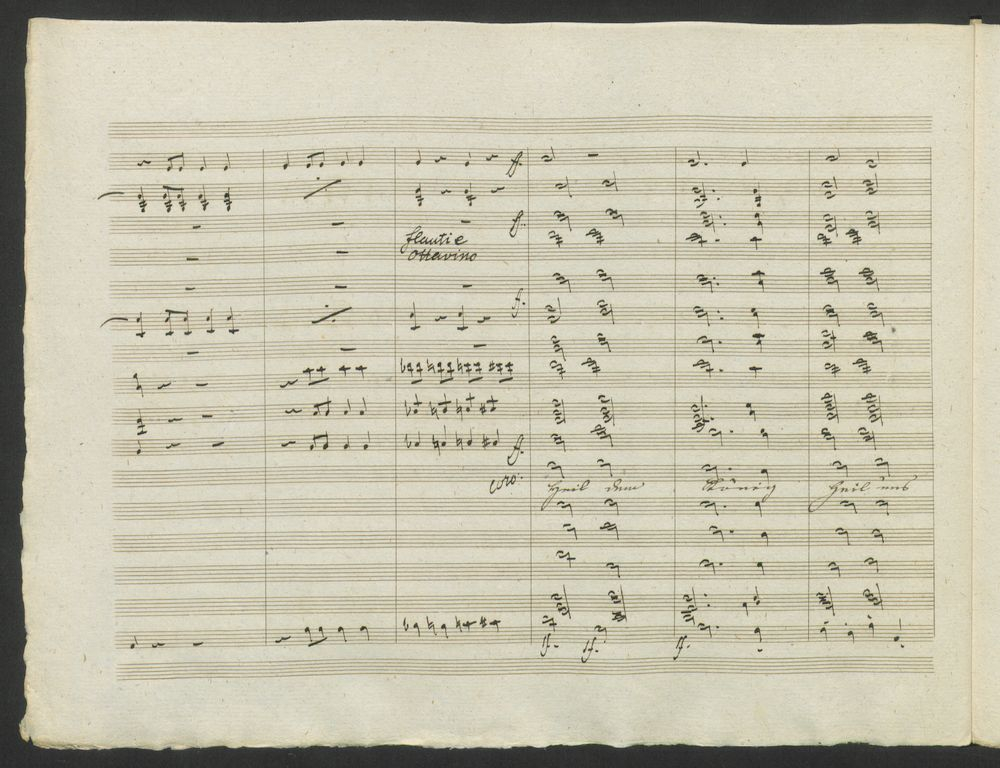 f.
f.
flauti e
ottavino
f.
f.
coro.
Heil dem König Heil uns
sf. sf. sf.